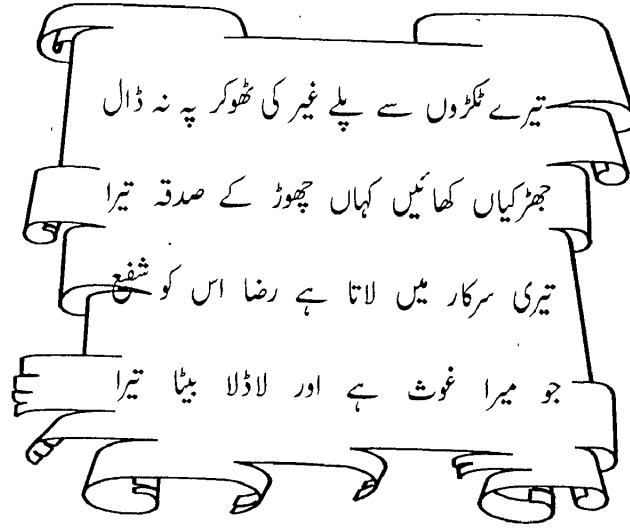 تیرے ٹکڑوں سے پلے غیر کی ٹھوکر پہ نہ ڈال
جھڑکیاں کھائیں کہاں چھوڑ کے صدقہ تیرا
تیری سرکار میں لاتا ہے رضا اس کو شفیع
جو میرا غوث ہے اور لاڈلا بیٹا تیرا